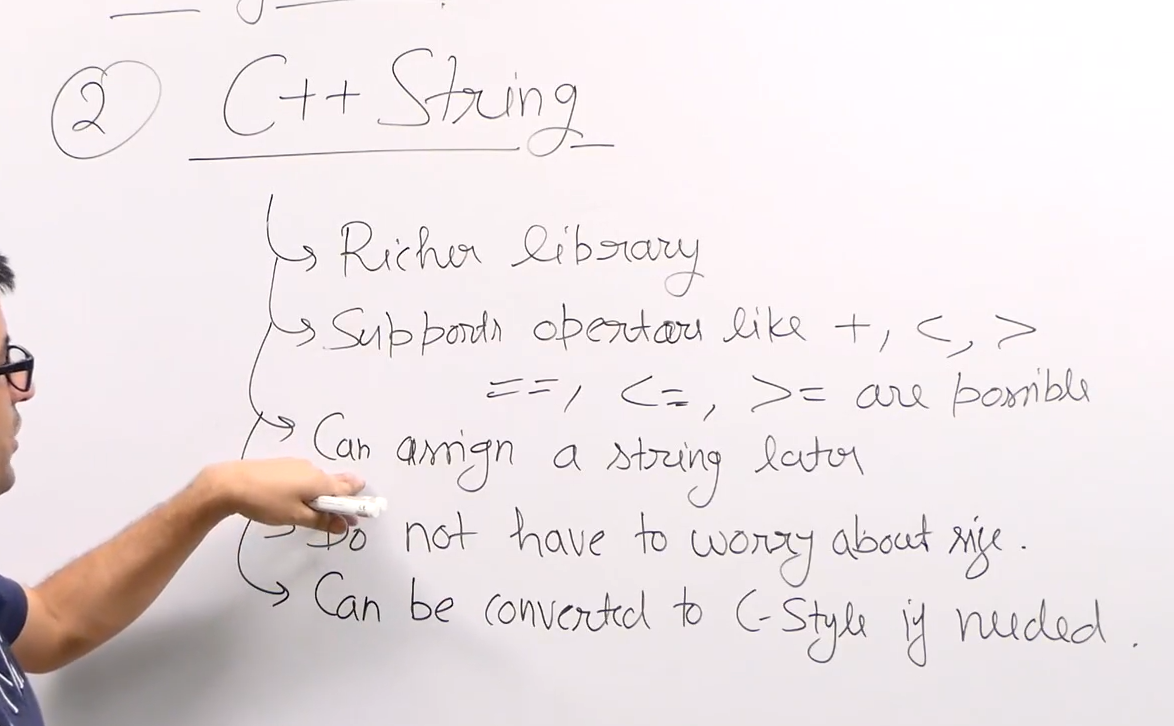 ② C++ String
Richer library
Supports opertors like +, <, >
==, <=, >= are possible
Can assign a string later
Do not have to worry about size.
Can be converted to C-Style if needed.